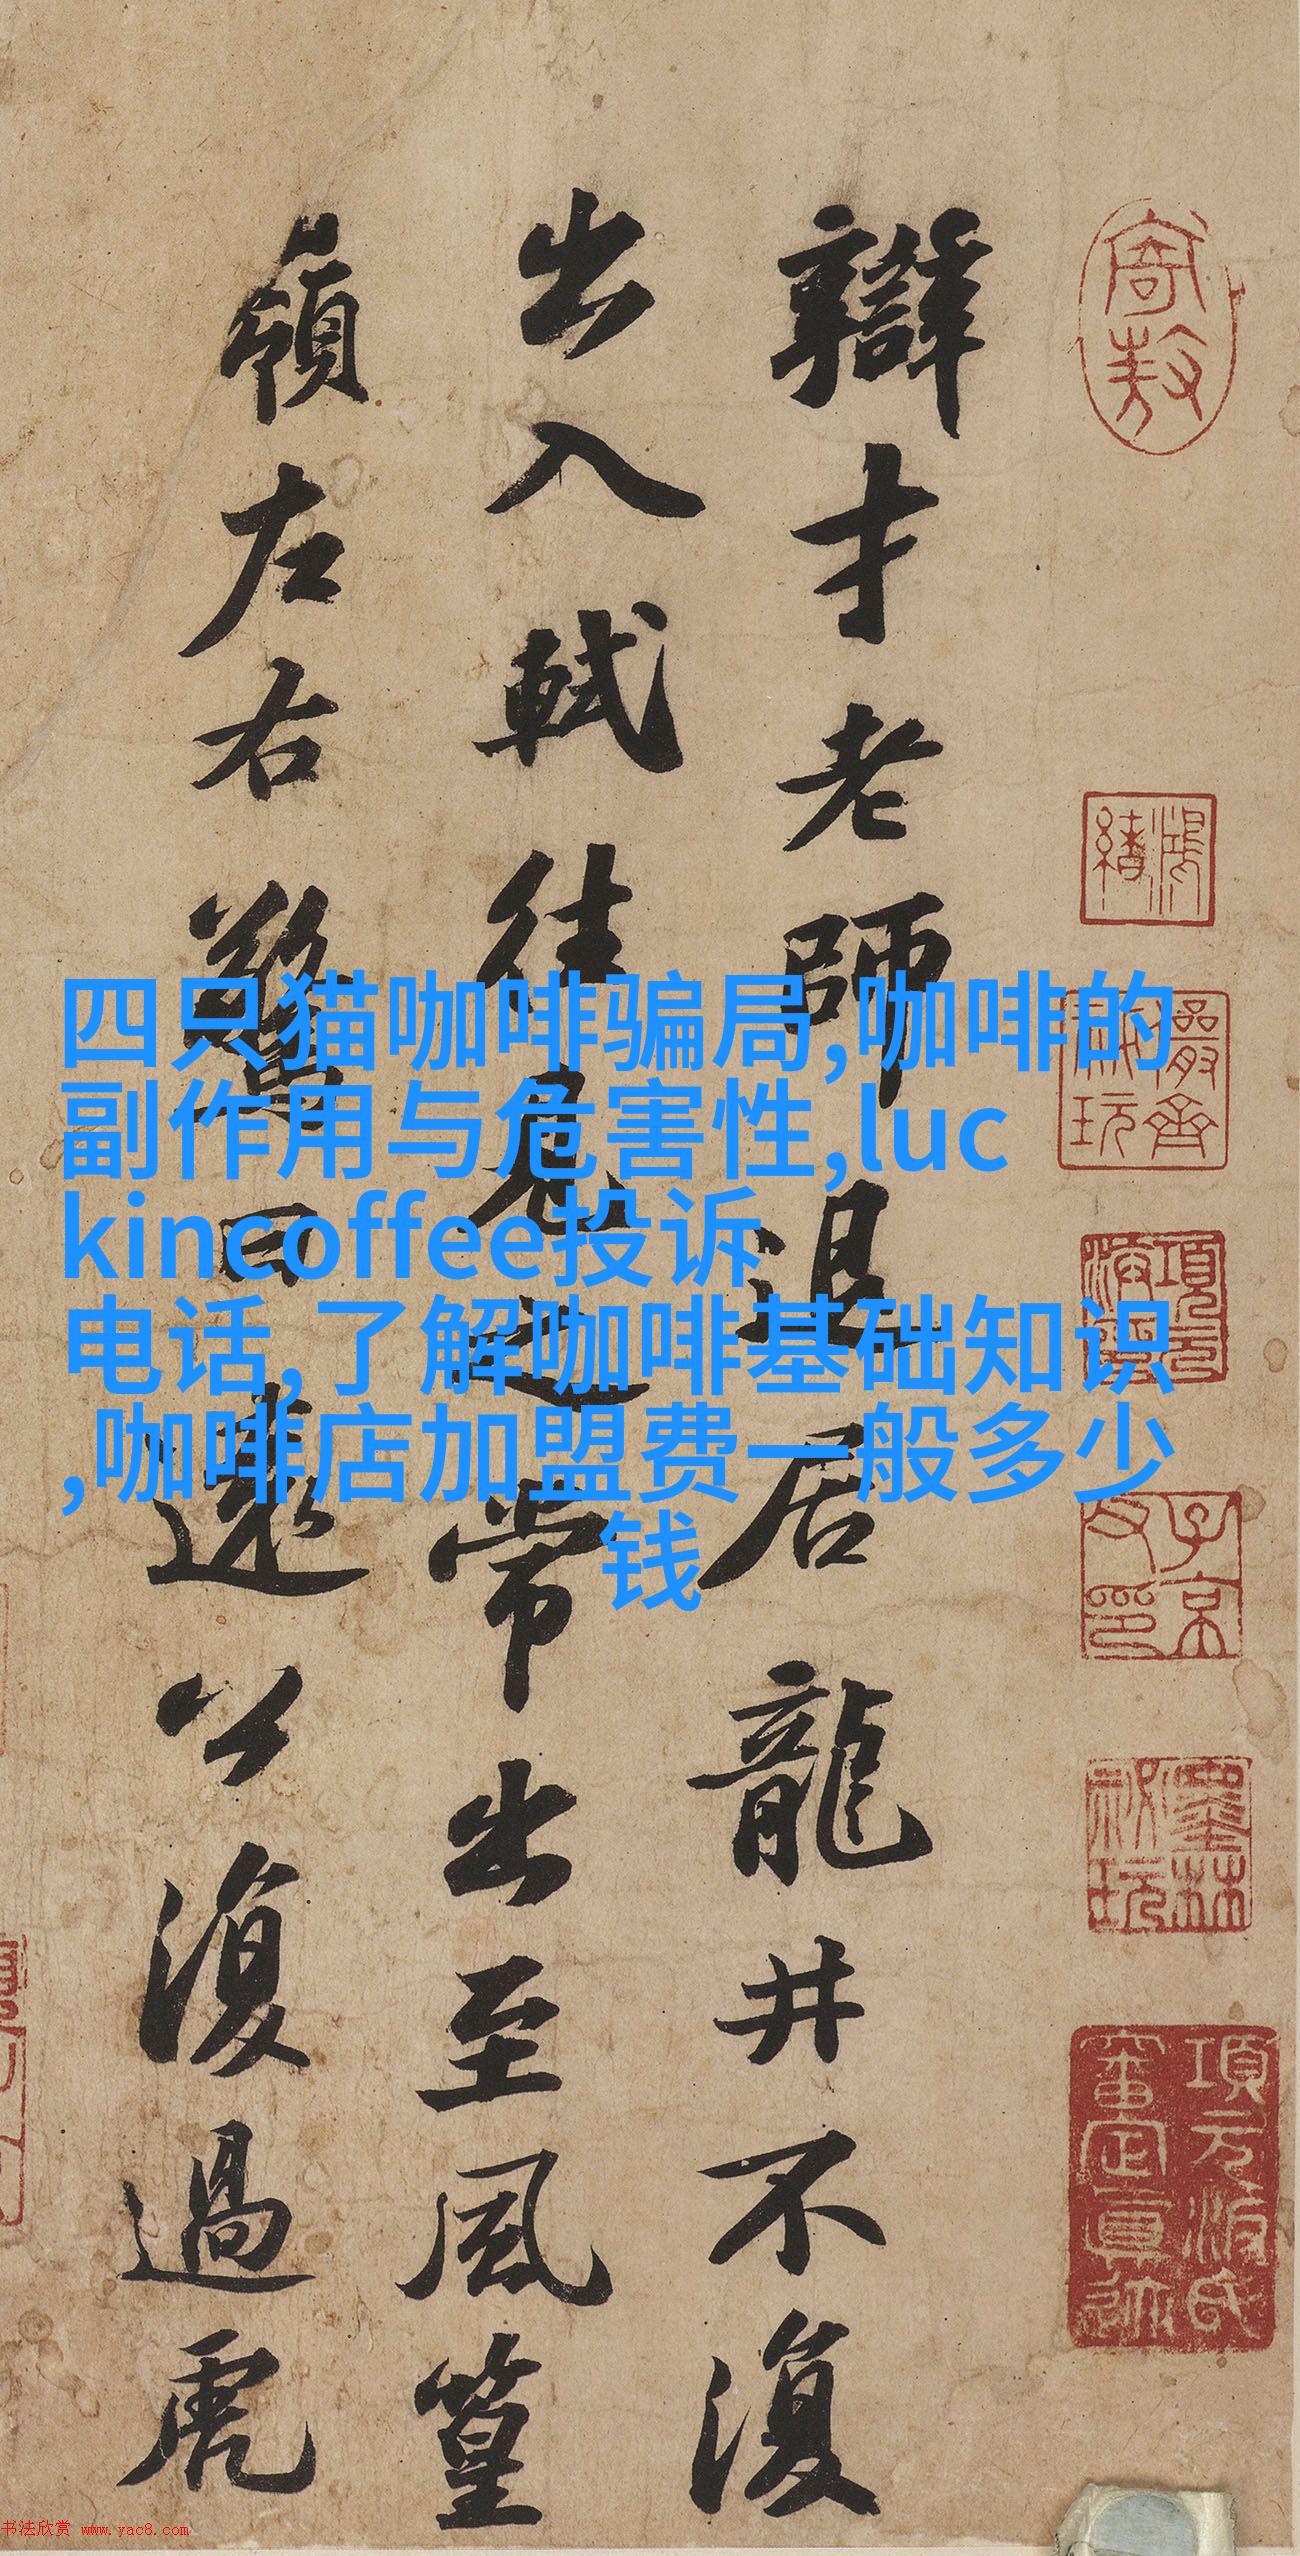 辯才老師退居龍井不復
出入軾往見之常出至風篁
嶺左右驚曰遠公復過虎
四只猫咖啡骗局,咖啡的
副作用与危害性,luc
kincoffee投诉
电话,了解咖啡基础知识
,咖啡店加盟费一般多少
钱
項元汴氏
審定真跡
子京
父印
墨林
祕玩
书法欣赏 www.yac8.com